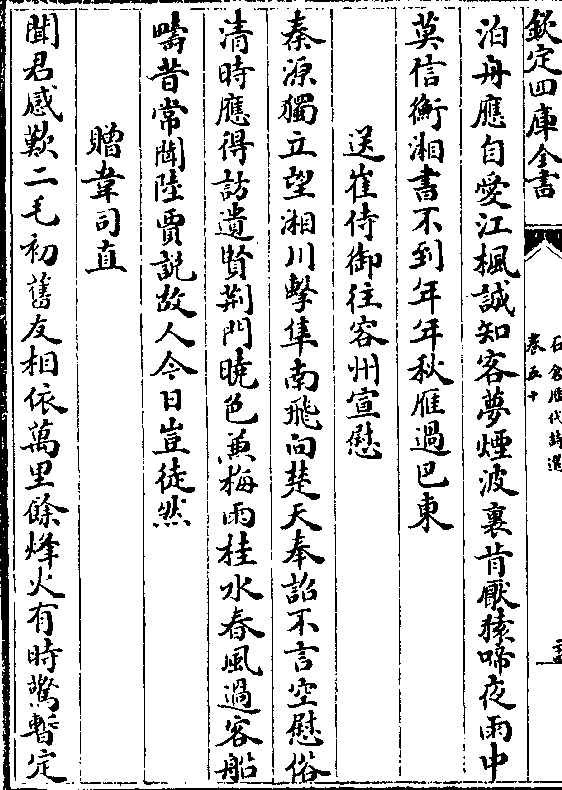 欽定四庫全書
石倉歷代詩選
卷五十
泊舟應自愛江楓誠知客夢煙波裏肯厭猿啼夜雨中
莫信衡湘書不到年年秋雁過巴東
送崔侍御往容州宣慰
秦源獨立望湘川擊隼南飛向楚天奉詔不言空慰俗
清時應得訪遺賢荆門曉色兼梅雨桂水春風過客船
疇昔常聞陸賈說故人今日豈徒然
贈韋司直
聞君感歎二毛初舊友相依萬里餘烽火有時驚暫定